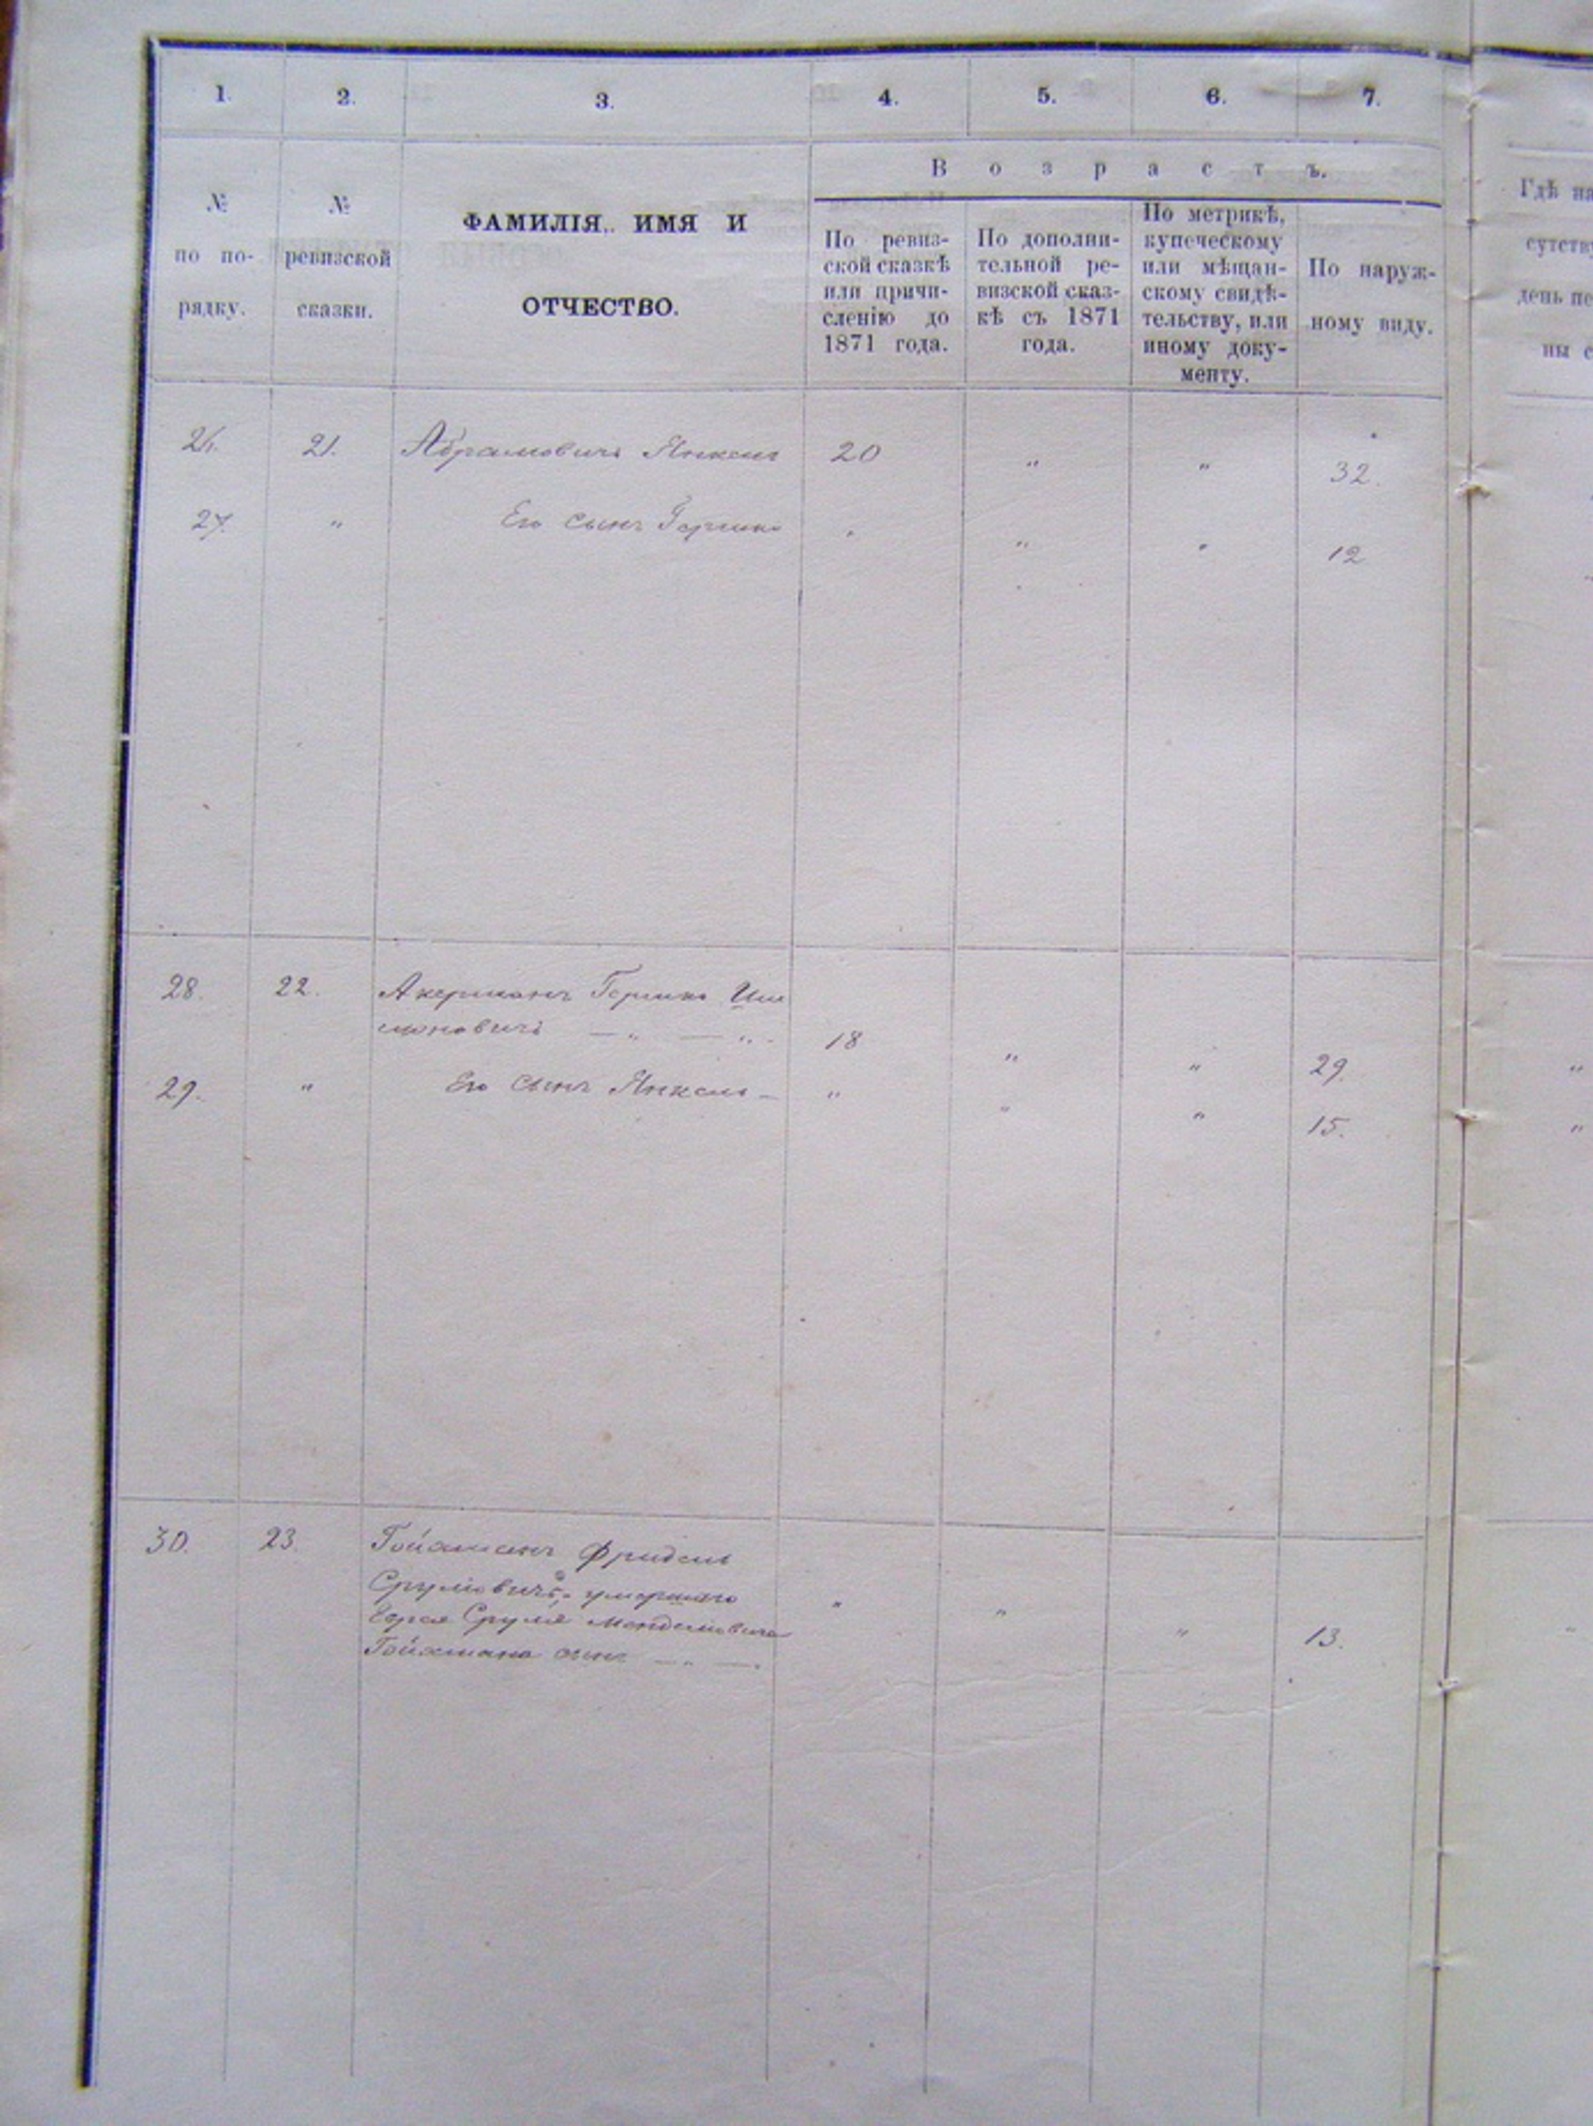 1. 2. 3. 4. 5. 6. 7.
Возрастъ.
№
по по-
рядку.
№
ревизской
сказки.
ФАМИЛІЯ, ИМЯ И
ОТЧЕСТВО.
По ревиз-
ской сказкѣ
или причи-
сленію до
1871 года.
По дополни-
тельной ре-
визской сказ-
кѣ съ 1871
года.
По метрикѣ,
купеческому
или мѣщан-
скому свидѣ-
тельству, или
иному доку-
менту.
По наруж-
ному виду.
Гдѣ на
сутству
день пе
ны с
26. 21. Абрамовичъ Янкель 20 " " 32.
27. " Его сынъ Гершко " " " 12
28. 22. Акерманъ Гершко Ши
моновичъ — „ — „ - 18 " " 29. "
29. " Его сынъ Янкель - " " " 15. "
30. 23. Гойхманъ Фридель
Срулiовичъ, умершаго
Еврея Сруля Менделiовича " " " 13. "
Гойхмана сынъ — „ —.